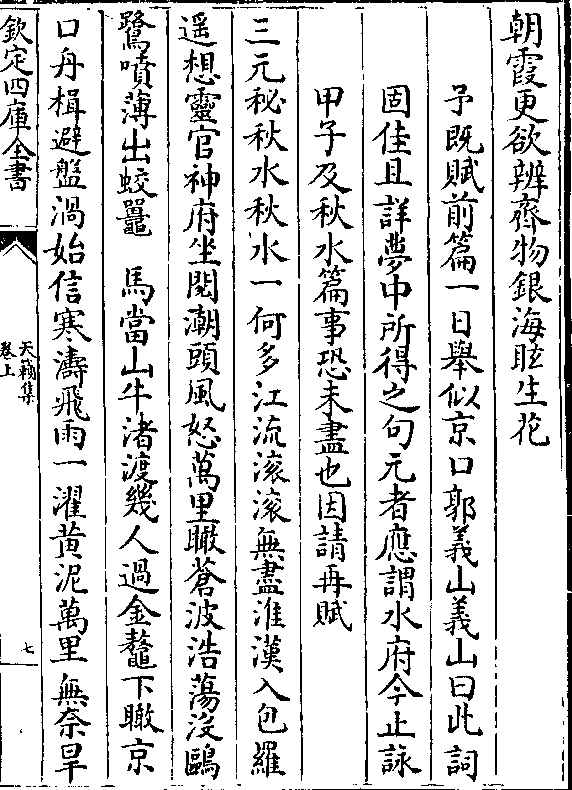 朝霞更欲辨齊物銀海眩生花
予既賦前篇一日舉似京口郭義山義山曰此詞
固佳且詳夢中所得之句元者應謂水府今止詠
甲子及秋水篇事恐未盡也因請再賦
三元秘秋水秋水一何多江流滚滚無盡淮漢入包羅
遥想靈官神府坐閱潮頭風怒萬里瞰蒼波浩蕩没鷗
鷺噴薄出蛟鼉 馬當山牛渚渡幾人過金鼇下瞰京
口舟楫避盤渦始信寒濤飛雨一濯黄泥萬里無奈旱
欽定四庫全書
天籟集
卷上
七